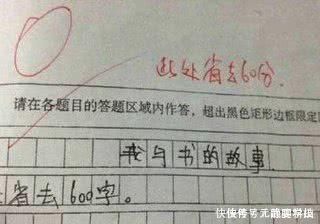 此处省去60分.
请在各题目的答题区域内作答，超出黑色矩形边框限定
我与书的故事
省去600字。